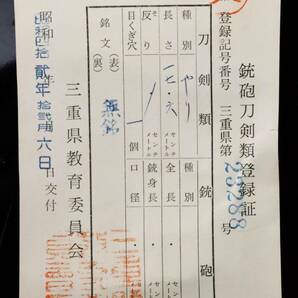 銃砲刀剣類登録証
登録記号番号 三重県第 23288 号
刀剣類
種別 やり
長さ 一七・六 センチメートル
反り ・ センチメートル
目くぎ穴 一個
銘文 (表) 無銘
(裏)
銃砲
種別
全長 ・ センチメートル
銃身長 ・ センチメートル
口径
昭和四拾貳年拾弐月六日交付
三重県教育委員会